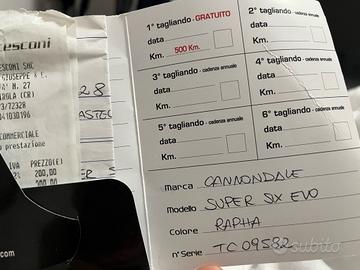 cesconi
CESCONI SNC
GIUSEPPE & C.
N. 27
(CR)
3/72328
COMMERCIALE
prestazione
IVA PREZZO(€)
200,00
28
.com
1° tagliando - GRATUITO
data
Km. 500 Km.
2° tagliando - cadenza annuale
data
Km.
3° tagliando - cadenza annuale
data
Km.
4° tagliando - cadenza annuale
data
Km.
5° tagliando - cadenza annuale
data
Km.
6° tagliando - cadenza annuale
data
Km.
Marca CANNONDALE
Modello SUPER SIX EVO
Colore RAPHA
n° Serie TC09582
subito